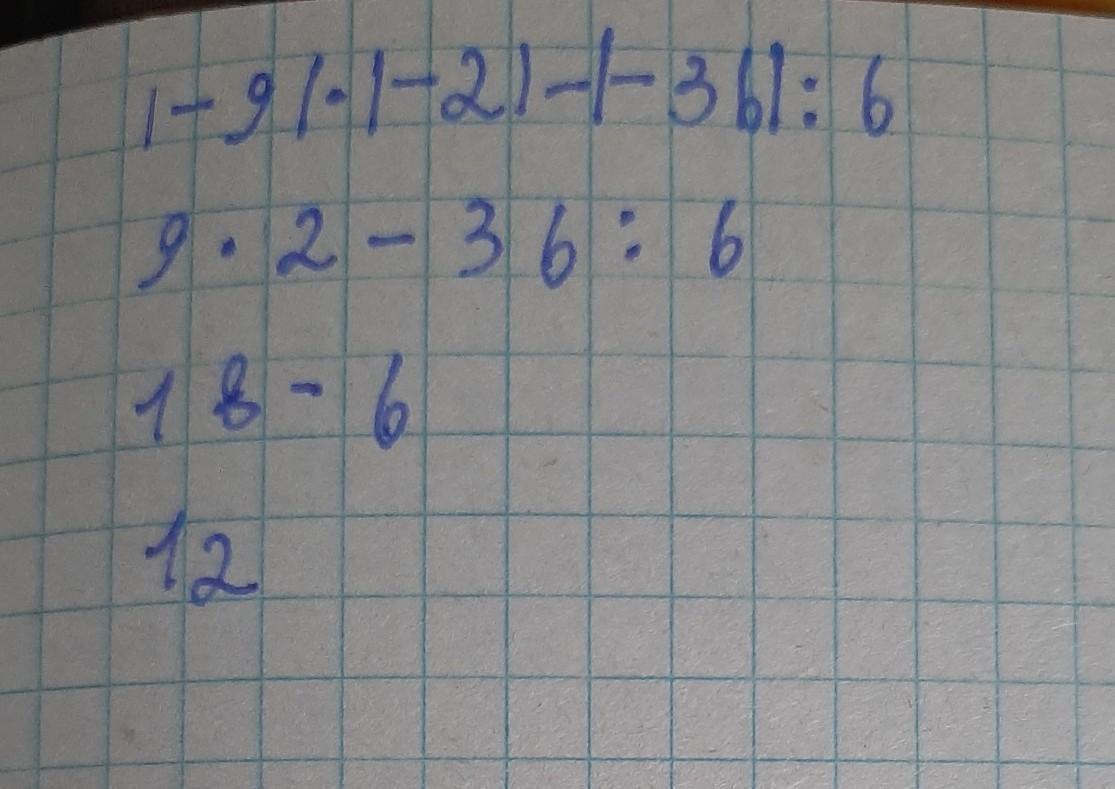 |-9|·|-2|-|-36|:6
9·2-36:6
18-6
12